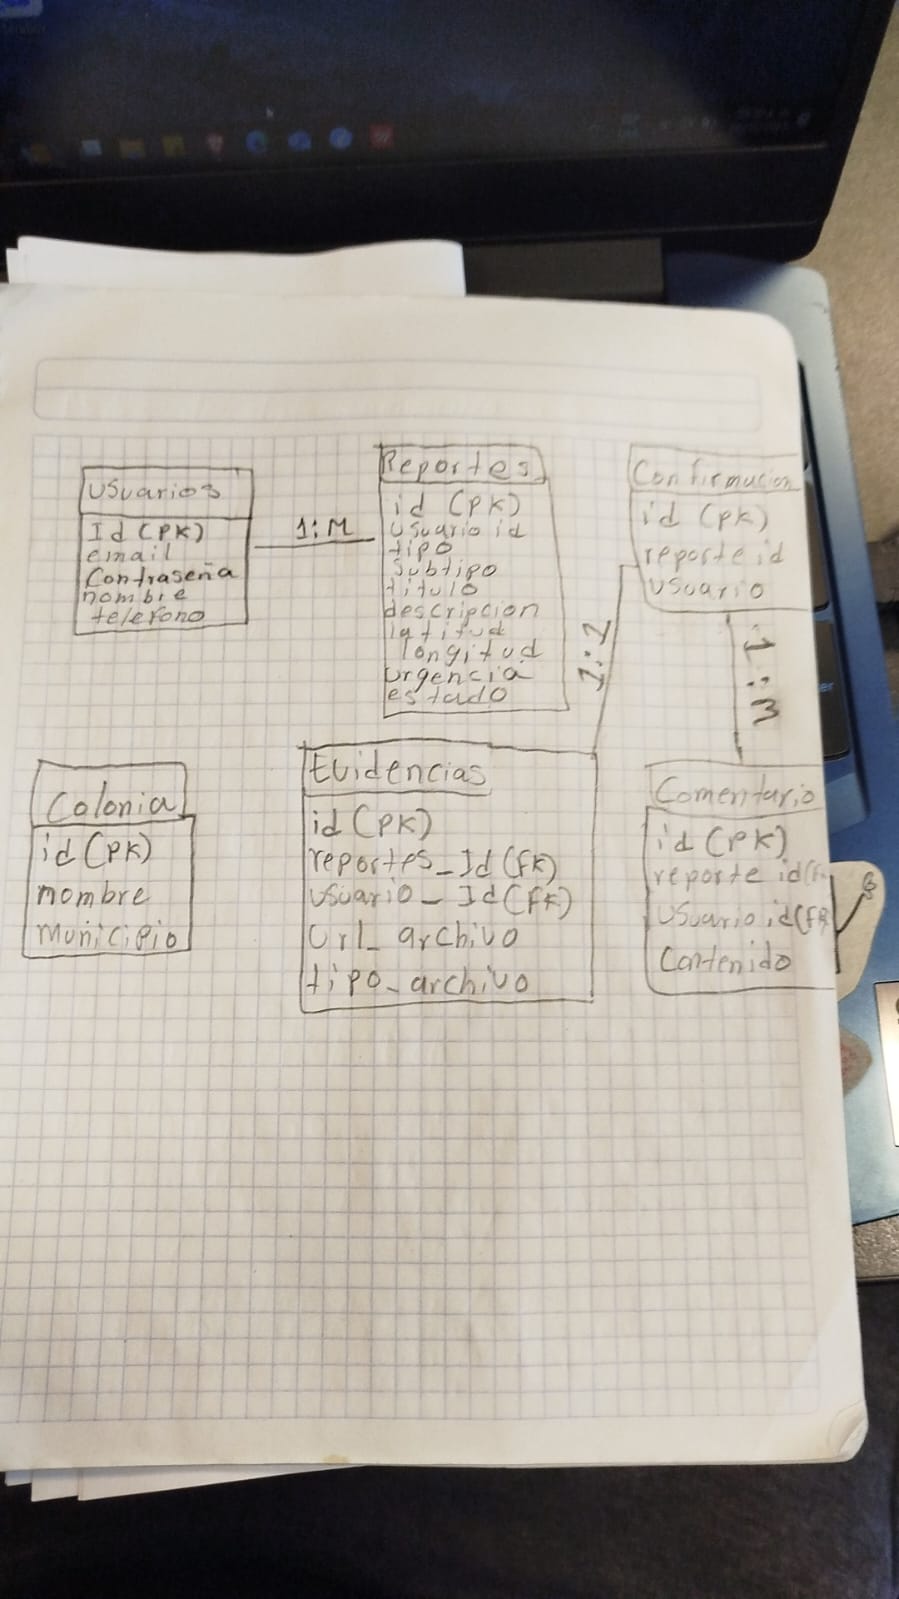 Usuarios
Id (PK)
email
Contraseña
nombre
telefono
1:M
Reportes
id (PK)
usuario id
tipo
Subtipo
titulo
descripcion
latitud
longitud
urgencia
estado
Confirmacion
id (PK)
reporte id
usuario
1:1
1:M
Colonia
id (PK)
nombre
Municipio
Evidencias
id (PK)
reportes_Id (FK)
Usuario_Id (FK)
Url_archivo
tipo_archivo
Comentario
id (PK)
reporte id
Usuario id (FK
Contenido